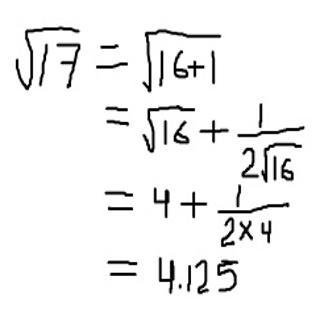 √17 = √16+1
= √16 + 1/2√16
= 4 + 1/2×4
= 4.125